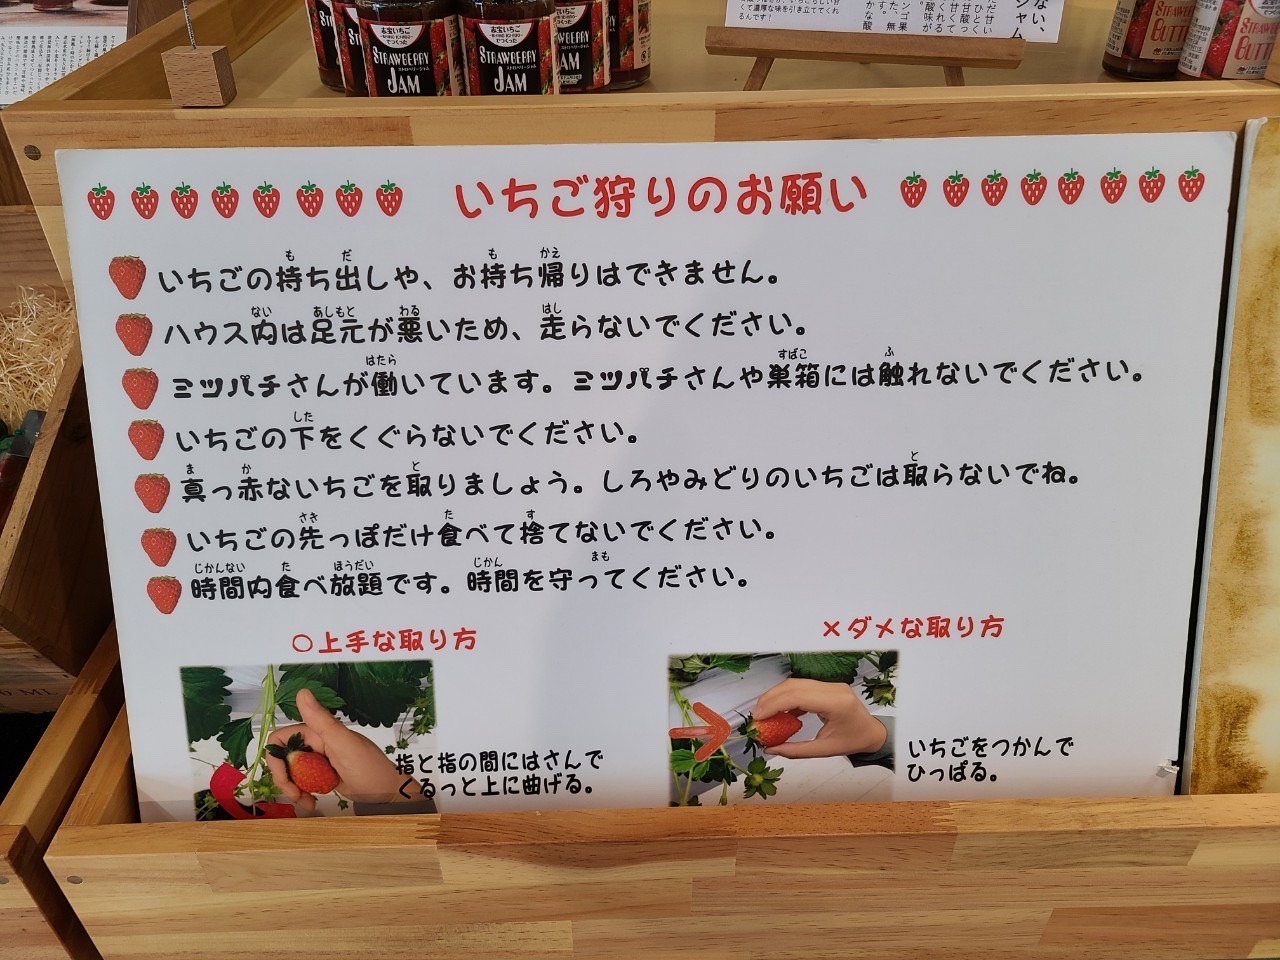 志宝いちご
でつくった
STRAWBERRY
ストロベリージャム
JAM
志宝いちご
でつくった
STRAWBERRY
ストロベリージャム
JAM
STRAWBERRY
GUTT
STRAWBERRY
GUTT
いちご狩りのお願い
いちごの持ち出しや、お持ち帰りはできません。
ハウス内は足元が悪いため、走らないでください。
ミツバチさんが働いています。ミツバチさんや巣箱には触れないでください。
いちごの下をくぐらないでください。
真っ赤ないちごを取りましょう。しろやみどりのいちごは取らないでね。
いちごの先っぽだけ食べて捨てないでください。
時間内食べ放題です。時間を守ってください。
○上手な取り方
指と指の間にはさんで
くるっと上に曲げる。
×ダメな取り方
いちごをつかんで
ひっぱる。